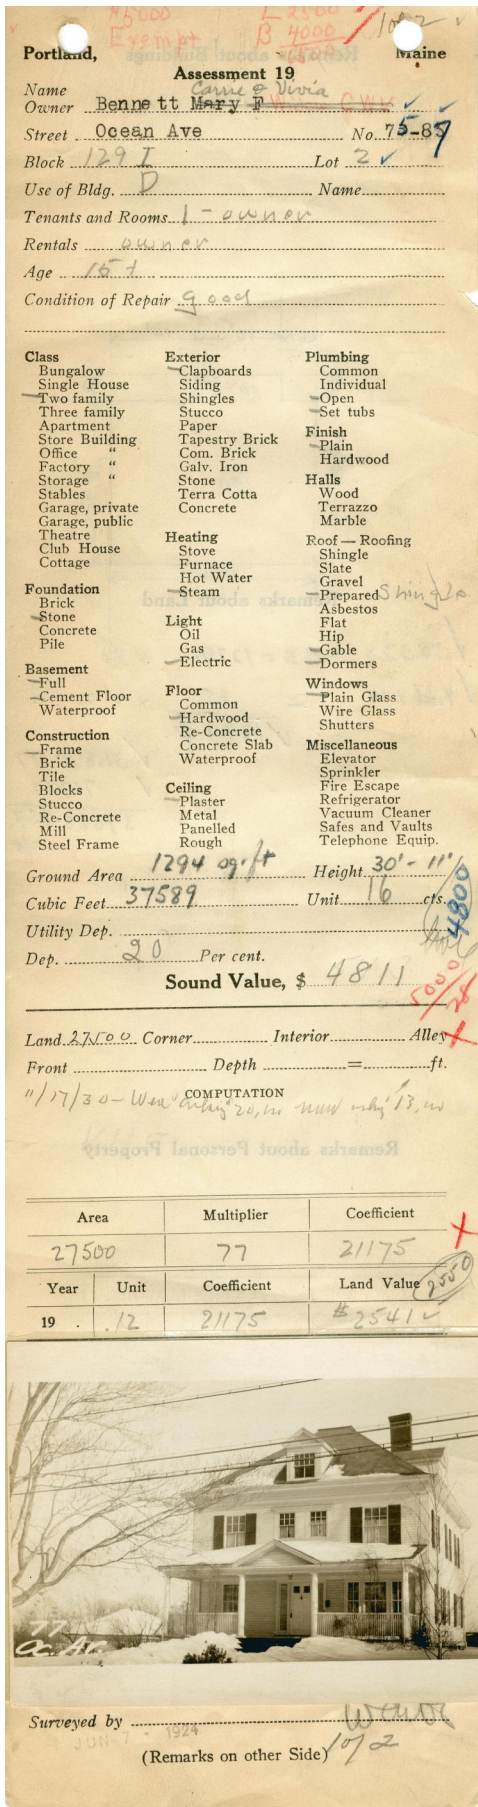 A 5000 L 2500 1 of 2
Exempt B 4000
1500
Portland, Maine
Assessment 19
Name Carrie & Vivia
Owner Bennett Mary F
Street Ocean Ave No. 75-87
Block 129 I Lot 2
Use of Bldg. D Name
Tenants and Rooms 1 - owner
Rentals owner
Age 15 +
Condition of Repair good
Class
Bungalow
Single House
Two family
Three family
Apartment
Store Building
Office "
Factory "
Storage "
Stables
Garage, private
Garage, public
Theatre
Club House
Cottage
Foundation
Brick
Stone
Concrete
Pile
Basement
Full
Cement Floor
Waterproof
Construction
Frame
Brick
Tile
Blocks
Stucco
Re-Concrete
Mill
Steel Frame
Exterior
Clapboards
Siding
Shingles
Stucco
Paper
Tapestry Brick
Com. Brick
Galv. Iron
Stone
Terra Cotta
Concrete
Heating
Stove
Furnace
Hot Water
Steam
Light
Oil
Gas
Electric
Floor
Common
Hardwood
Re-Concrete
Concrete Slab
Waterproof
Ceiling
Plaster
Metal
Panelled
Rough
Plumbing
Common
Individual
Open
Set tubs
Finish
Plain
Hardwood
Halls
Wood
Terrazzo
Marble
Roof — Roofing
Shingle
Slate
Gravel
Prepared Shingle
Asbestos
Flat
Hip
Gable
Dormers
Windows
Plain Glass
Wire Glass
Shutters
Miscellaneous
Elevator
Sprinkler
Fire Escape
Refrigerator
Vacuum Cleaner
Safes and Vaults
Telephone Equip.
Ground Area 1294 sq. ft Height 30' - 11"
Cubic Feet 37589 Unit 16 cts.
4800
Utility Dep.
Dep. 20 Per cent.
Sound Value, $ 4811
5000/28
Land 27500 Corner Interior Alley
Front Depth = ft.
COMPUTATION
11/17/30 -
Area Multiplier Coefficient
27500 77 21175
2550
Year Unit Coefficient Land Value
19 . .12 21175 $2541
77
Oc. Av.
Surveyed by
JUN - 1924
(Remarks on other Side) 1 of 2